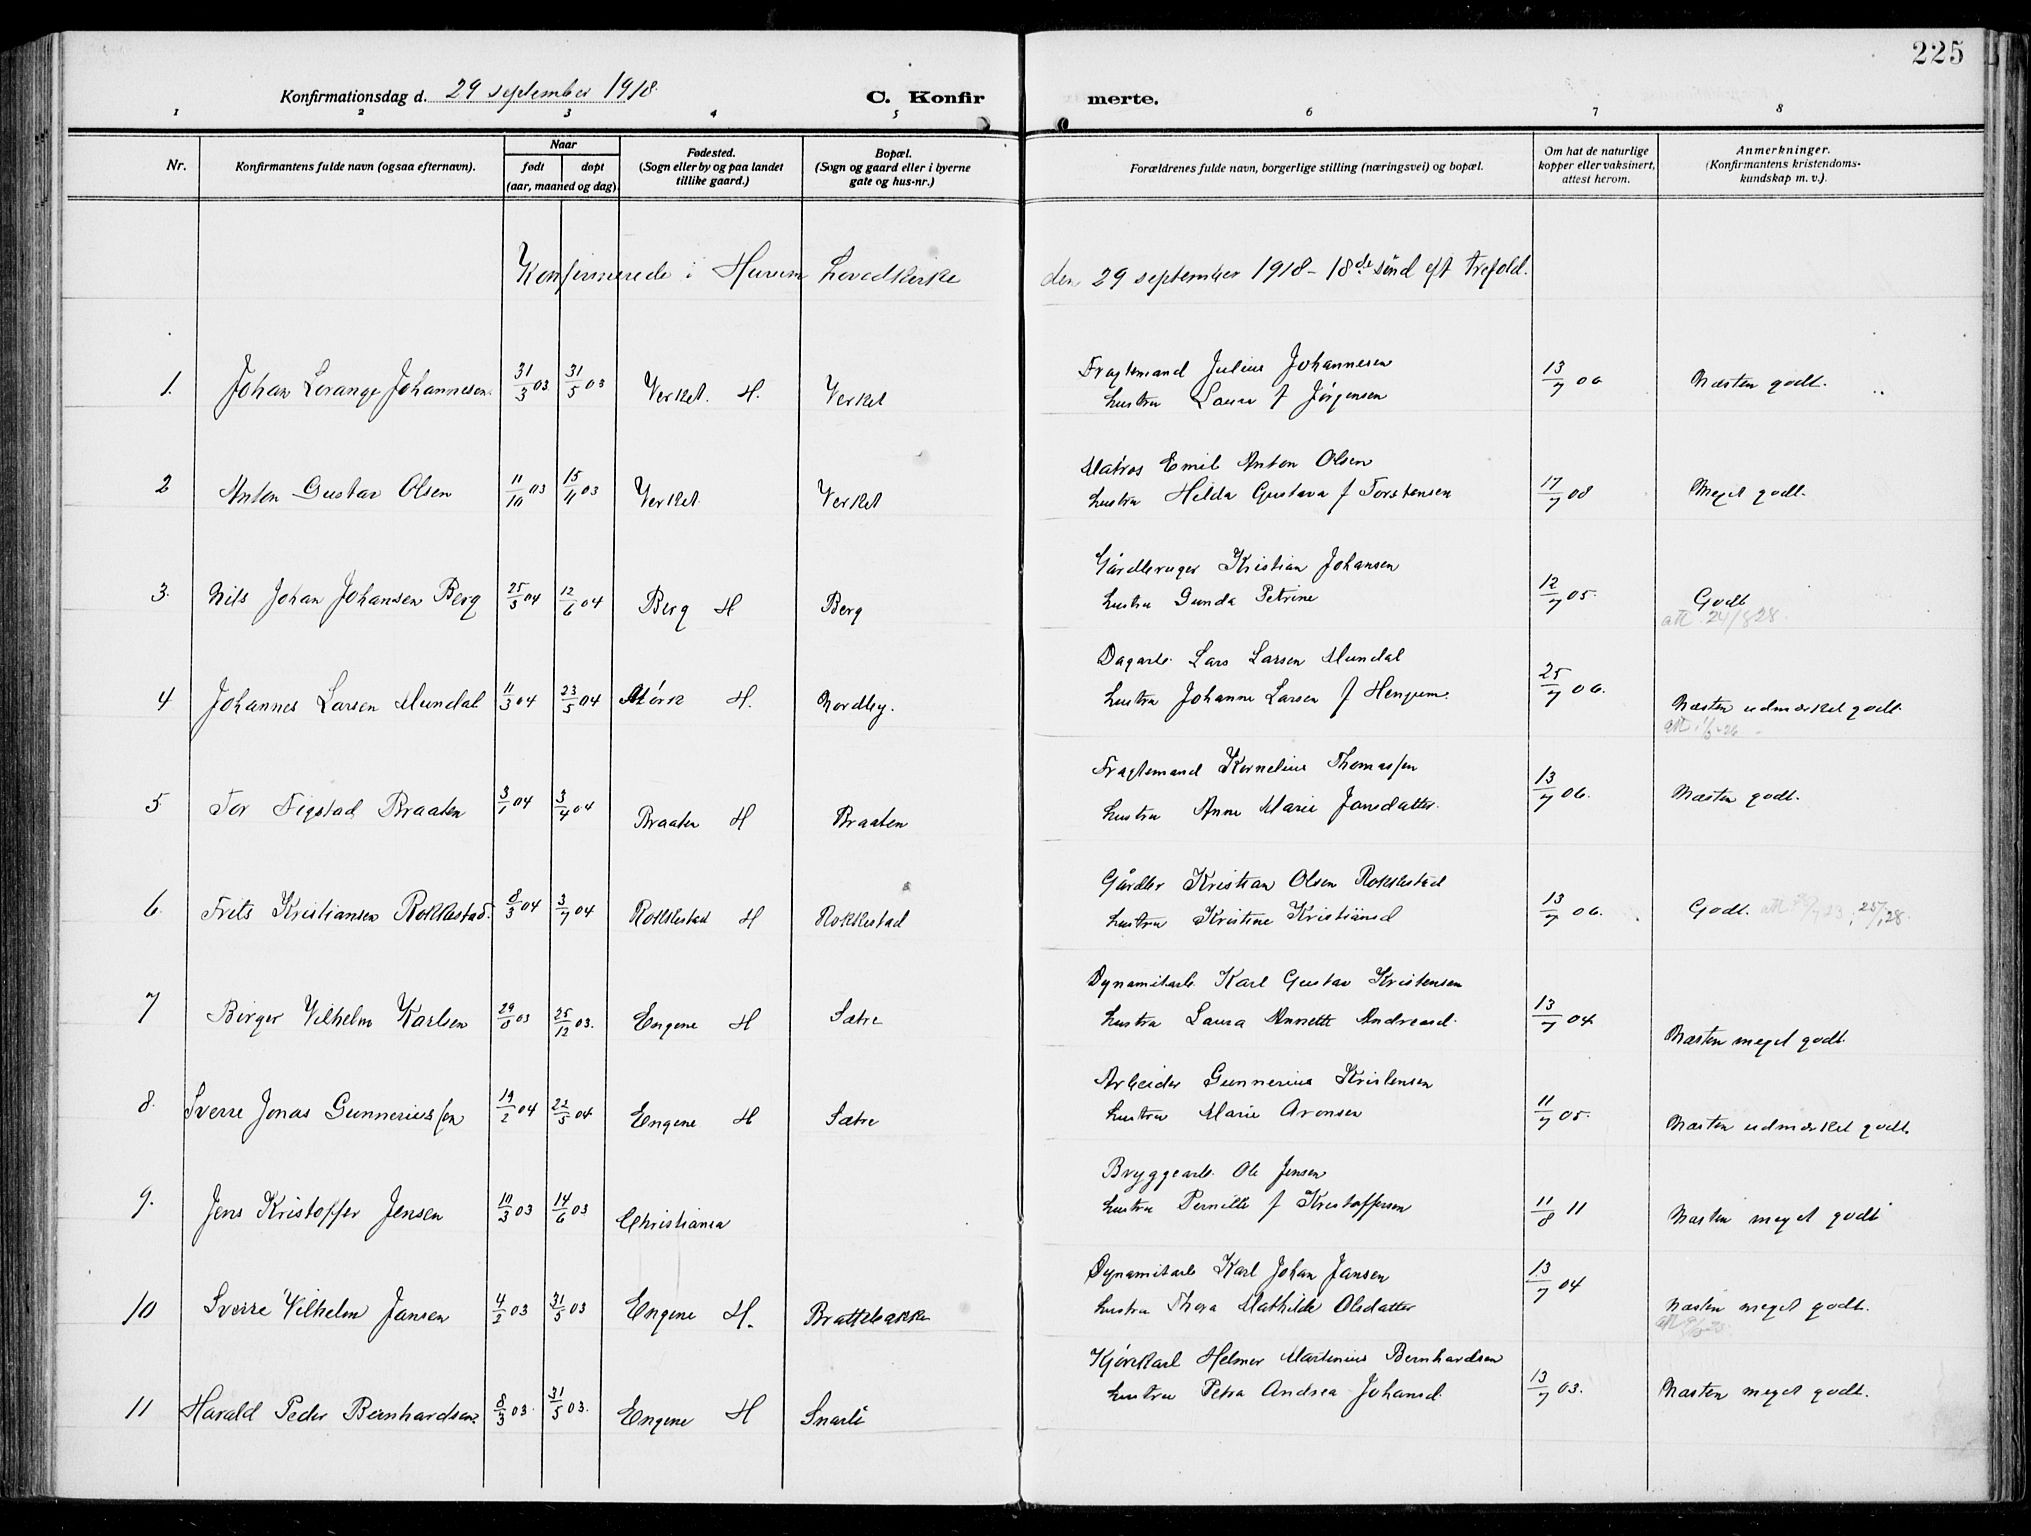 225
Konfirmationsdag d. 29 september 1918.
C. Konfirmerte.
1 2 3 4 5 6 7 8
Nr.
Konfirmantens fulde navn (ogsaa efternavn).
Naar
født døpt
(aar, maaned og dag).
Fødested.
(Sogn eller by og paa landet
tillike gaard.)
Bopæl.
(Sogn og gaard eller i byerne
gate og hus-nr.)
Forældrenes fulde navn, borgerlige stilling (næringsvei) og bopæl.
Om hat de naturlige
kopper eller vaksinert,
attest herom.
Anmerkninger.
(Konfirmantens kristendoms-
kundskap m. v.).
Konfirmerede i Hurum Hovedkirke den 29 september 1918 - 18de sønd eft trefold.
1. Johan Lorange Johannesen. 31/3 03 31/5 03 Verket. H. Verket
Fragtemand Julius Johannesen
hustru Laura f Jørgensen
13/7 06 Næsten godt.
2 Anton Gustav Olsen 11/10 03 15/11 03 Verket Verket
Matros Emil Anton Olsen
hustru Hilda Gustava f Torstensen
17/7 08 Meget godt.
3. Nils Johan Johansen Berg 25/3 04 12/6 04 Berg H Berg
Gårdbruger Kristian Johansen
hustru Gunda Petrine
12/7 05. Godt
att. 24/8 28.
4 Johannes Larsen Mundal 11/3 04 23/5 04 Mørk H. Nordby.
Dagarb. Lars Larsen Mundal
hustru Johanne Larsen f Hengum.
25/7 06. Næsten udmærket godt.
5 Tor Tigstad Braaten 3/1 04 3/4 04 Braaten H Braaten
Fragtemand Kornelius Thomassen
hustru Anne Marie Jansdatter.
13/7 06. Næsten godt.
6. Frits Kristiansen Rokkestad. 8/3 04 3/7 04 Rokkestad H Rokkestad
Gårdbr Kristian Olsen Rokkestad
hustru Kristine Kristiansd
13/7 06. Godt.
7 Birger Vilhelm Karlsen 29/8 03 25/12 03. Engene H Sætre
Dynamitarb Karl Gustav Kristensen
hustru Laura Annette Andreasd.
13/7 04 Næsten meget godt.
8. Sverre Jonas Gunneriussen 19/2 04 22/5 04 Engene H Sætre
Arbeider Gunnerius Kristensen
hustru Marie Aronsen
11/7 05. Næsten udmærket godt.
9. Jens Kristoffer Jensen 10/3 03 14/6 03 Christiania
Bryggearb. Ole Jensen
hustru Pernille f Kristoffersen
11/8 11 Næsten meget godt
10 Sverre Vilhelm Jansen 4/2 03 31/5 03 Engene H. Brattebakke
Dynamitarb Karl Johan Jansen
hustru Thora Mathilde Olsdatter
13/7 04 Næsten meget godt.
11 Harald Peder Bernhardsen. 8/3 03. 31/5 03. Engene H Snarli
Kjørekarl Helmer Martinius Bernhardsen
hustru Petra Andrea Johansd.
13/7 03. Næsten meget godt.